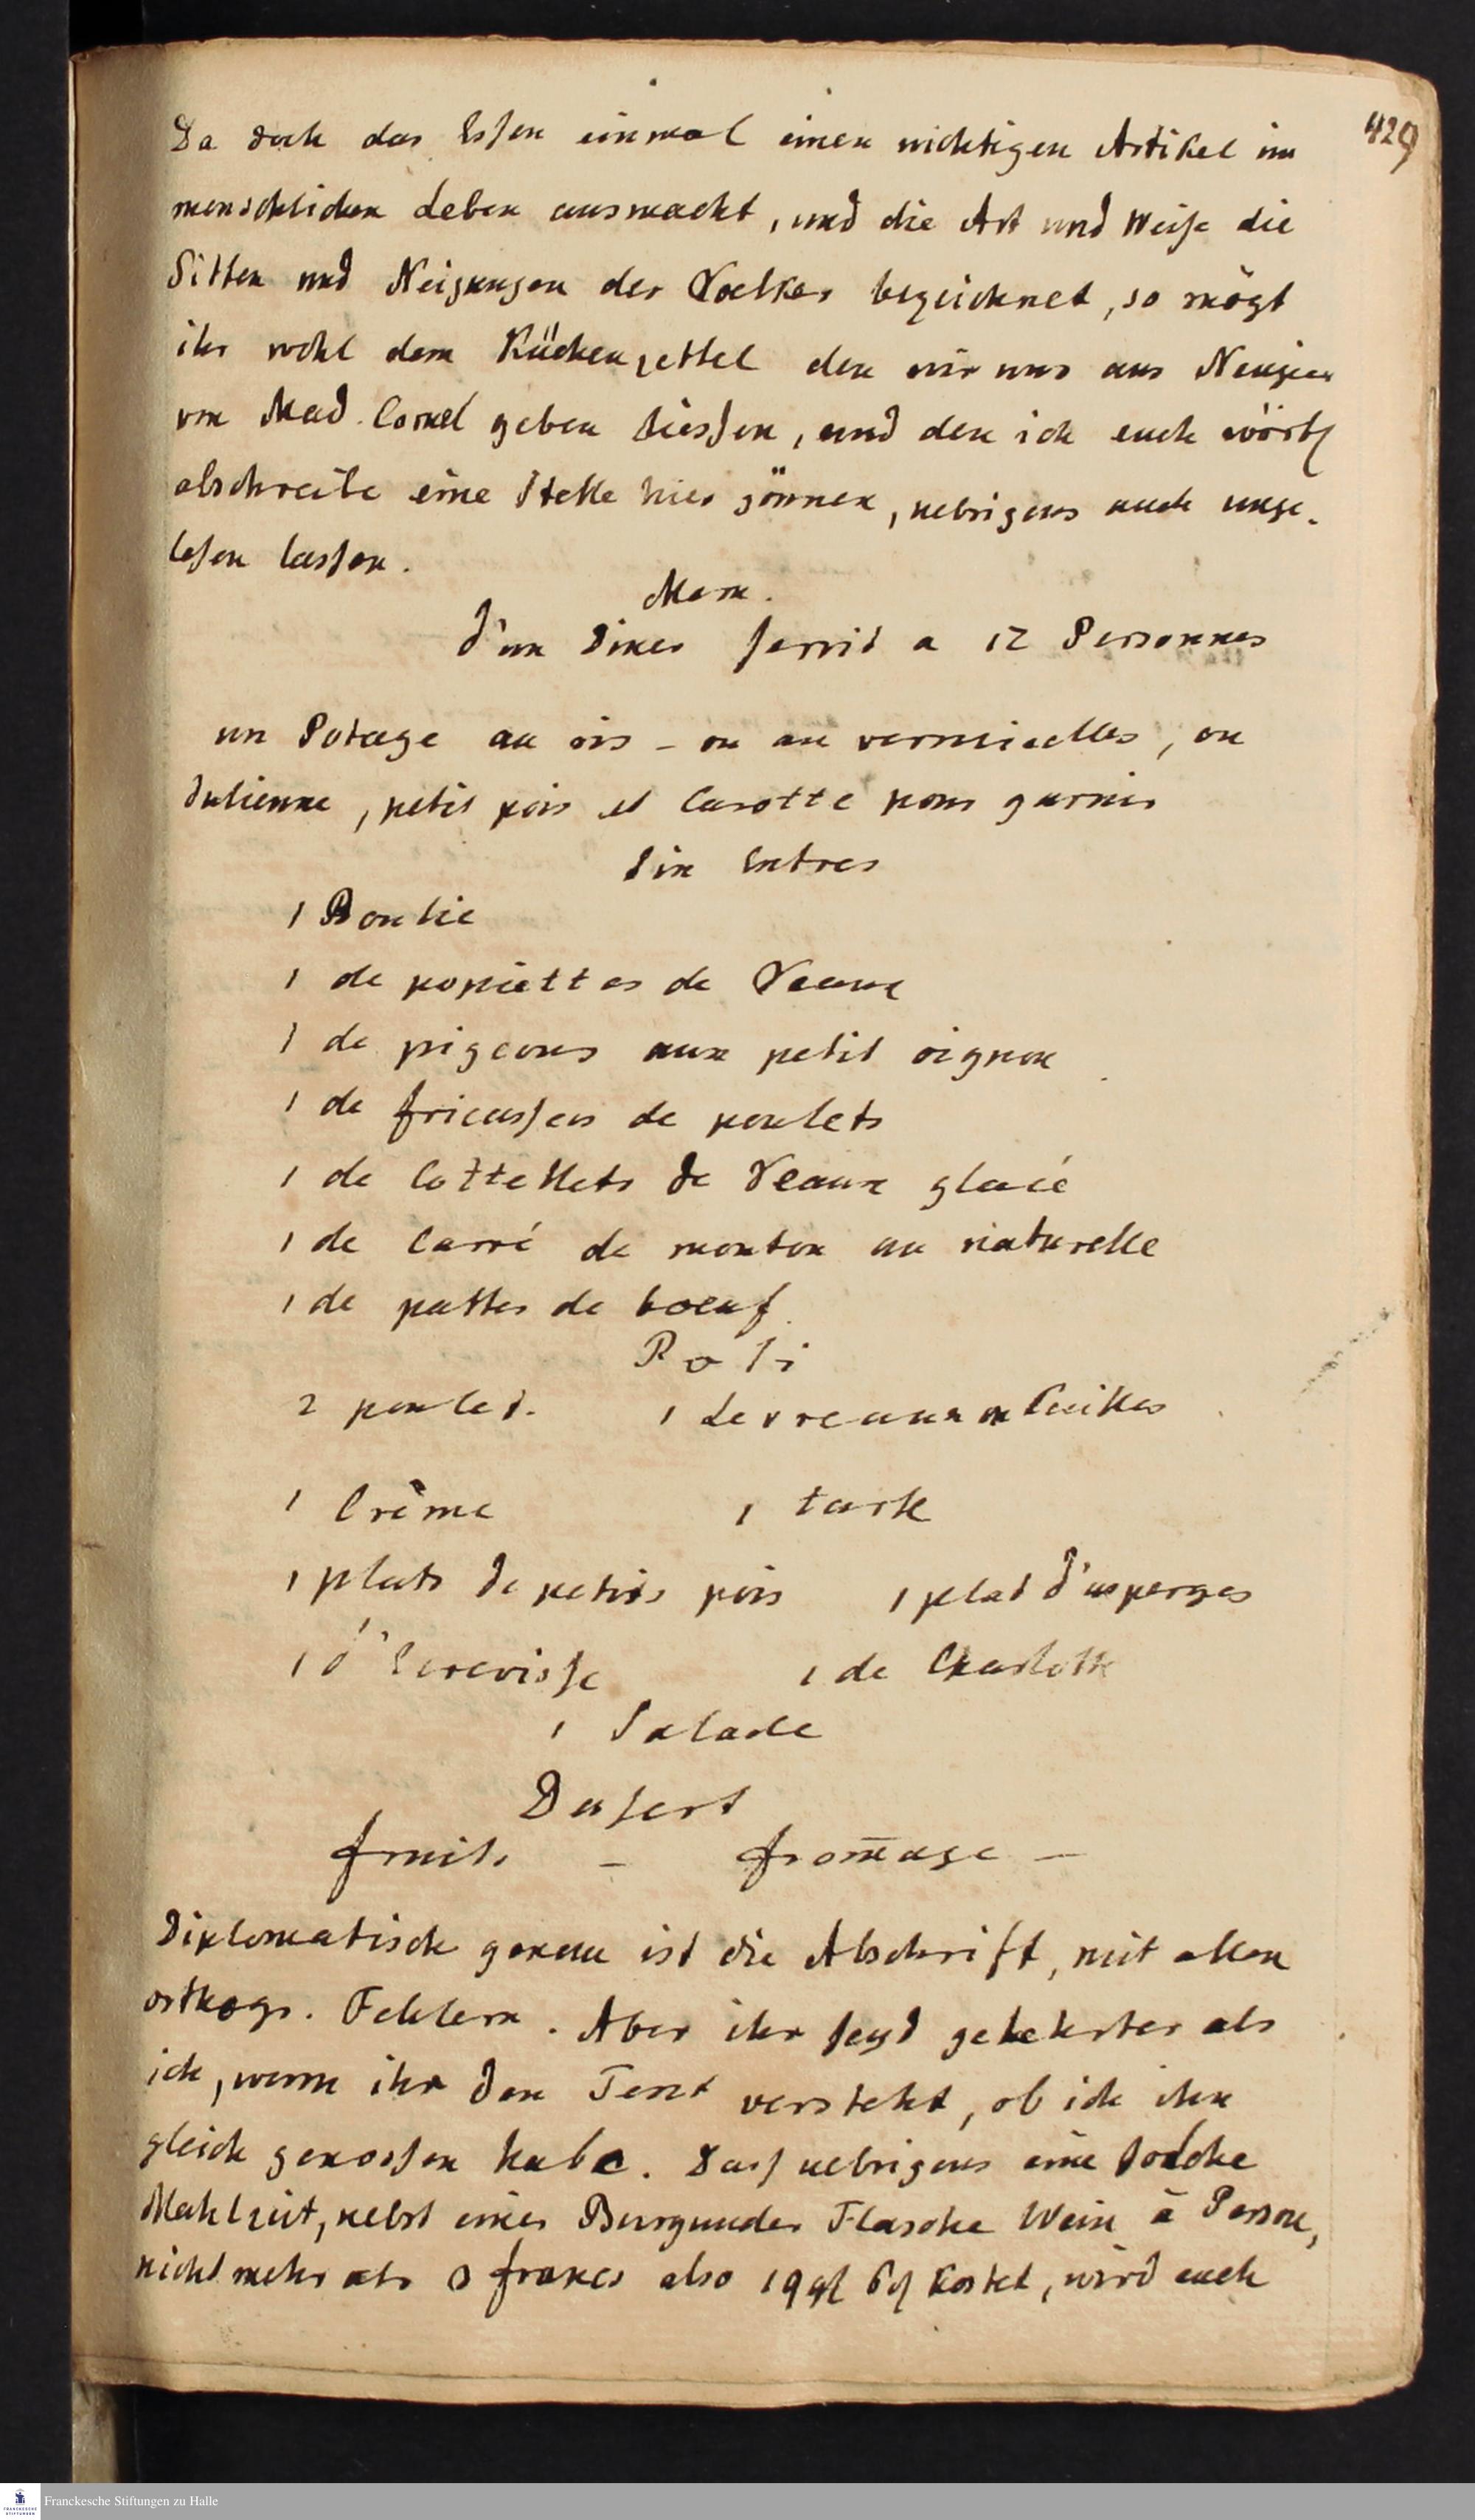 429
Da doch das Essen einmal einen wichtigen Artikel im
menschlichen Leben ausmacht, und die Art und Weise die
Sitten und Neigungen der Voelker bezeichnet, so mögt
ihr wohl dem Küchenzettel den wir uns aus Neugier
von Mad. Cornel geben liessen, und den ich euch wörtl
abschreibe eine Stelle hier gönnen, uebrigens auch unge-
lesen lassen.
Menu.
d'un Diner servit a 12 Personnes
un Potage au ris - ou au vermicelles, ou
Julienne, petit pois et Carotte pour garnir
Six Entres
1 Boulie
1 de popiettes de Veaux
1 de pigeons aux petit oignon
1 de fricassees de poulets
1 de Cottellets de Veaux glacé
1 de Carré de mouton au naturelle
1 de pattes de boeuf
Roti
2 poulet. 1 Levreaux ou Cailles
1 Crême 1 tarte
1 plats de petits pois 1 plat d'asperges
1 d'Ecrevisse 1 de Charlotte
1 Salade
Desert
fruits - from̅age -
Diplomatisch genau ist die Abschrift, mit allen
orthogr. Fehlern. Aber ihr seyd gelehrter als
ich, wenn ihr den Text versteht, ob ich ihn
gleich genossen habe. Dass uebrigens eine solche
Mahlzeit, nebst einer Burgunder Flasche Wein à Person,
nicht mehr als 3 francs also 19 gl 6 kostet, wird euch
Franckesche Stiftungen zu Halle